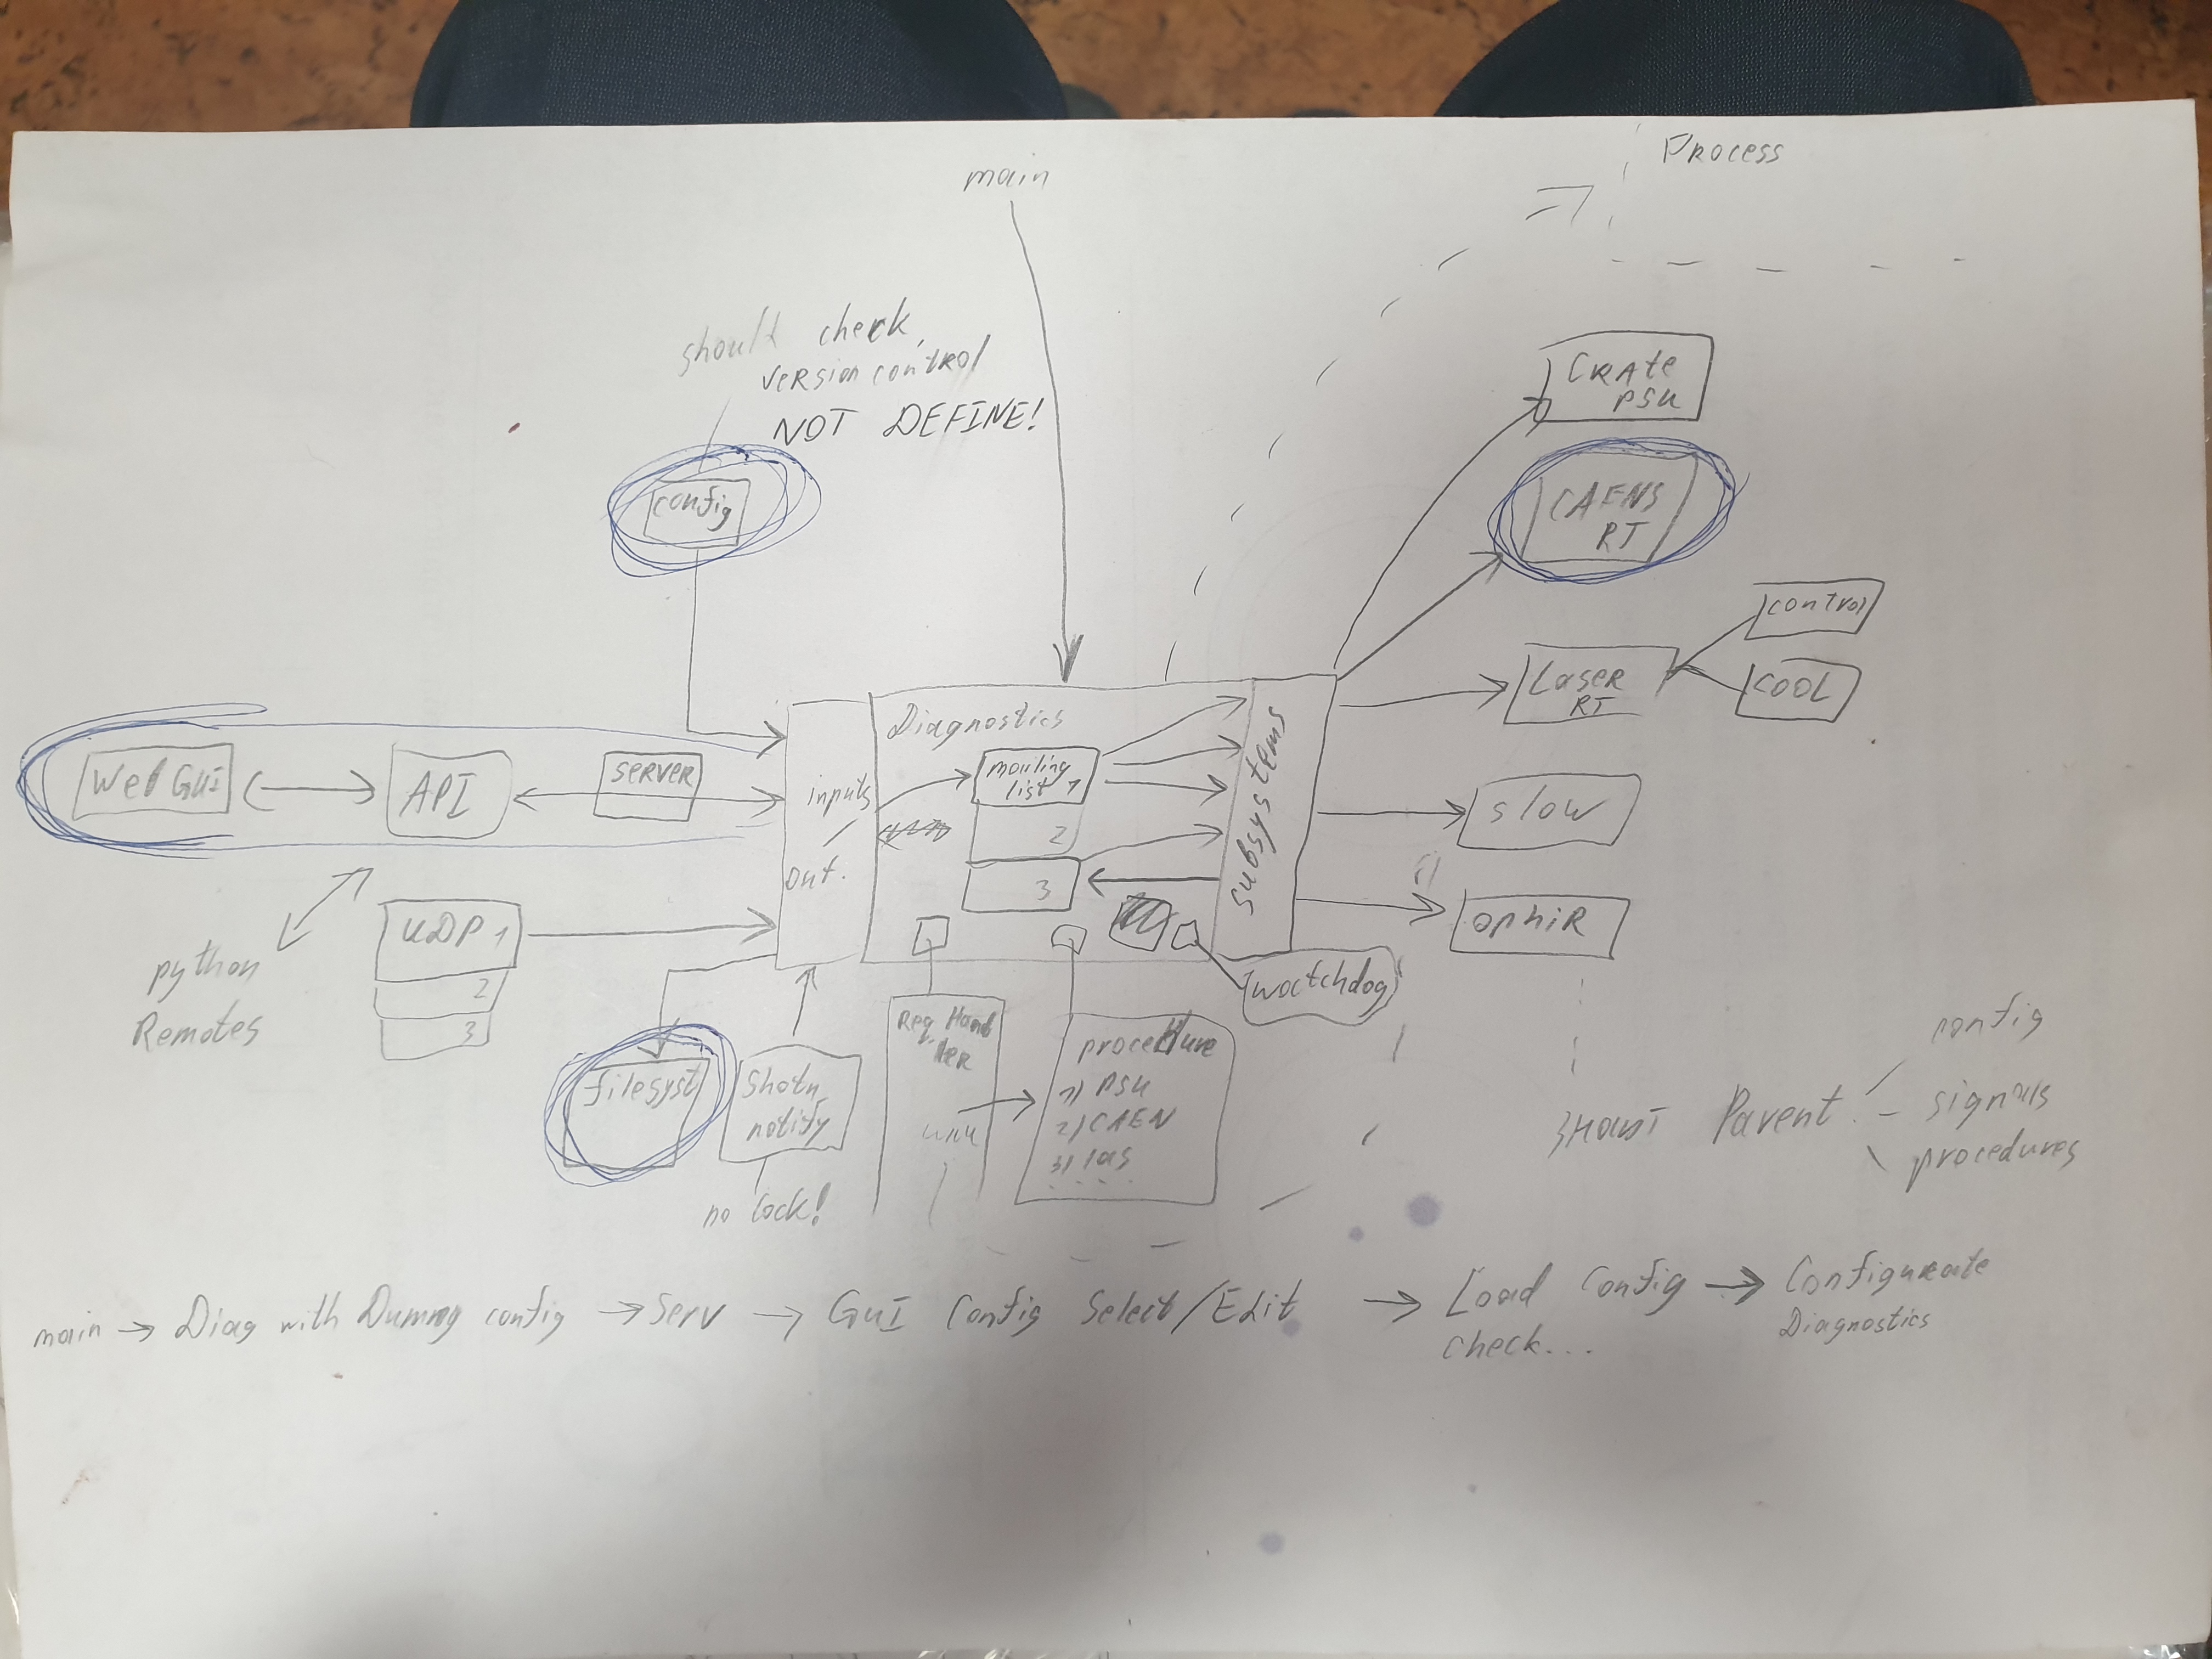 Process
main
should check,
version control
NOT DEFINE!
Crate
PSU
config
CAENS
RT
control
Laser
RT
COOL
Diagnostics
Web GUI
API
SERVER
inputs
/
out.
mailing
list 1
2
3
subsystems
slow
ophiR
UDP 1
2
3
python
Remotes
watchdog
filesyst
Shotn
notify
no lock!
Req. Hand
ler
procedure
1) PSU
2) CAEN
3) las
. . . .
config
Parent
signals
procedures
main → Diag with Dummy config → Serv → GUI Config Select/Edit → Load Config → Configurate
check...
Diagnostics